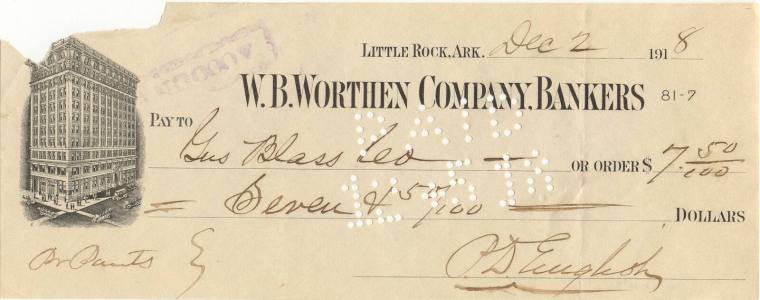 LITTLE ROCK, ARK. Dec 2 1918
W.B. WORTHEN COMPANY, BANKERS 81-7
PAY TO Gus Blass Co — OR ORDER $ 7.50/100
= Seven & 50/100 — DOLLARS
PAID
Pr Pants
P.D. English